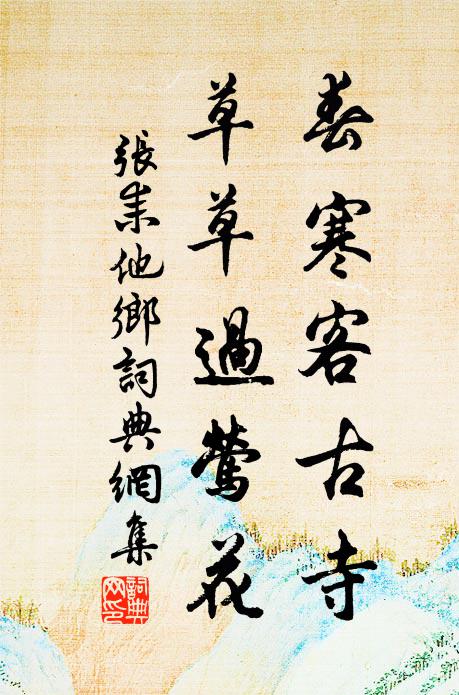 春寒客古寺
草草過鶯花
張耒他鄉詞典網集
詞典網印